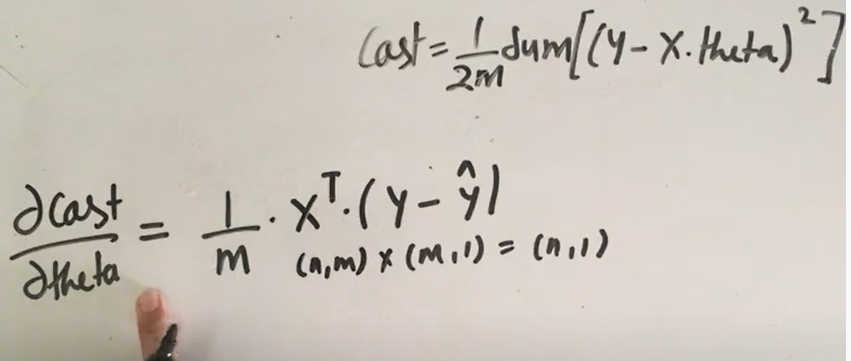 Cast = 1/2m Sum[(Y - X.theta)²]
∂Cast/∂theta = 1/m . X^T . (Y - ŷ)
(n,m) x (m,1) = (n,1)